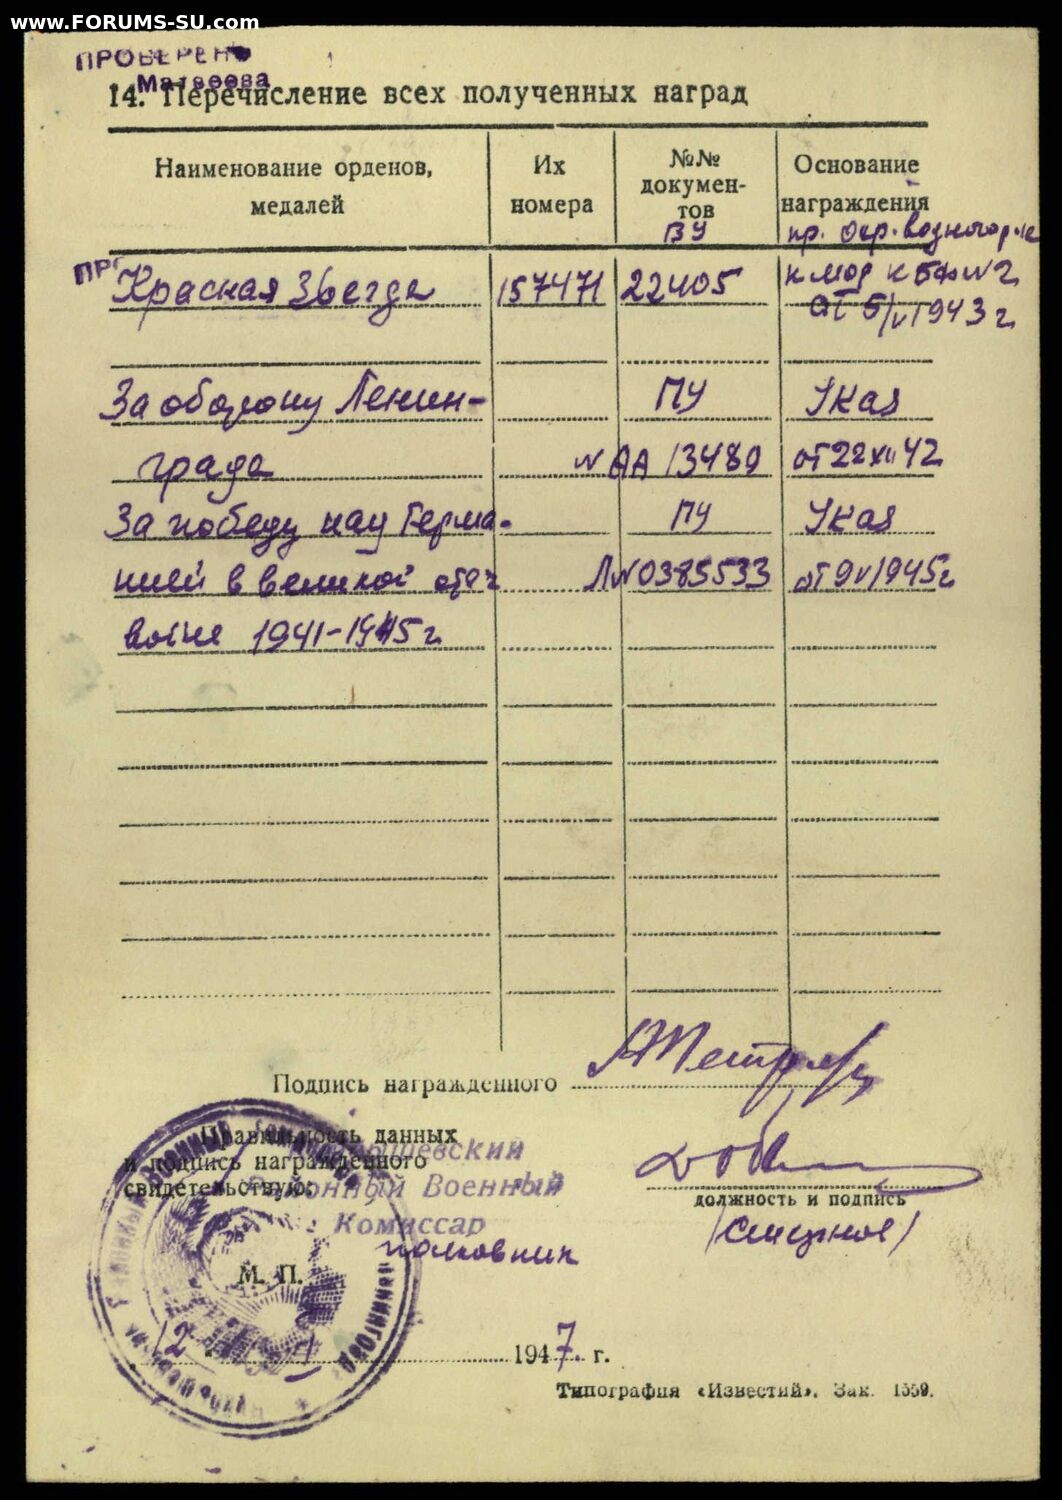 www.FORUMS-SU.com
ПРОВЕРЕНО
Матвеева
14. Перечисление всех полученных наград
Наименование орденов, медалей
Их номера
№№ документов
Основание награждения
ВУ
ПР
Красная Звезда 157471 22405
от 5/V 1943 г
За оборону Ленин- ПУ Указ
града № АА 13489 от 22 XII 42
За победу над Герма- ПУ Указ
нией в великой отеч Л№0385533 от 9 V 1945г
войне 1941-1945 г
Подпись награжденного
Правильность данных
и подпись награжденного
свидетельствую:
Районный Военный
Комиссар
полковник
должность и подпись
М. П.
12
1947 г.
Типография «Известий». Зак. 1559.